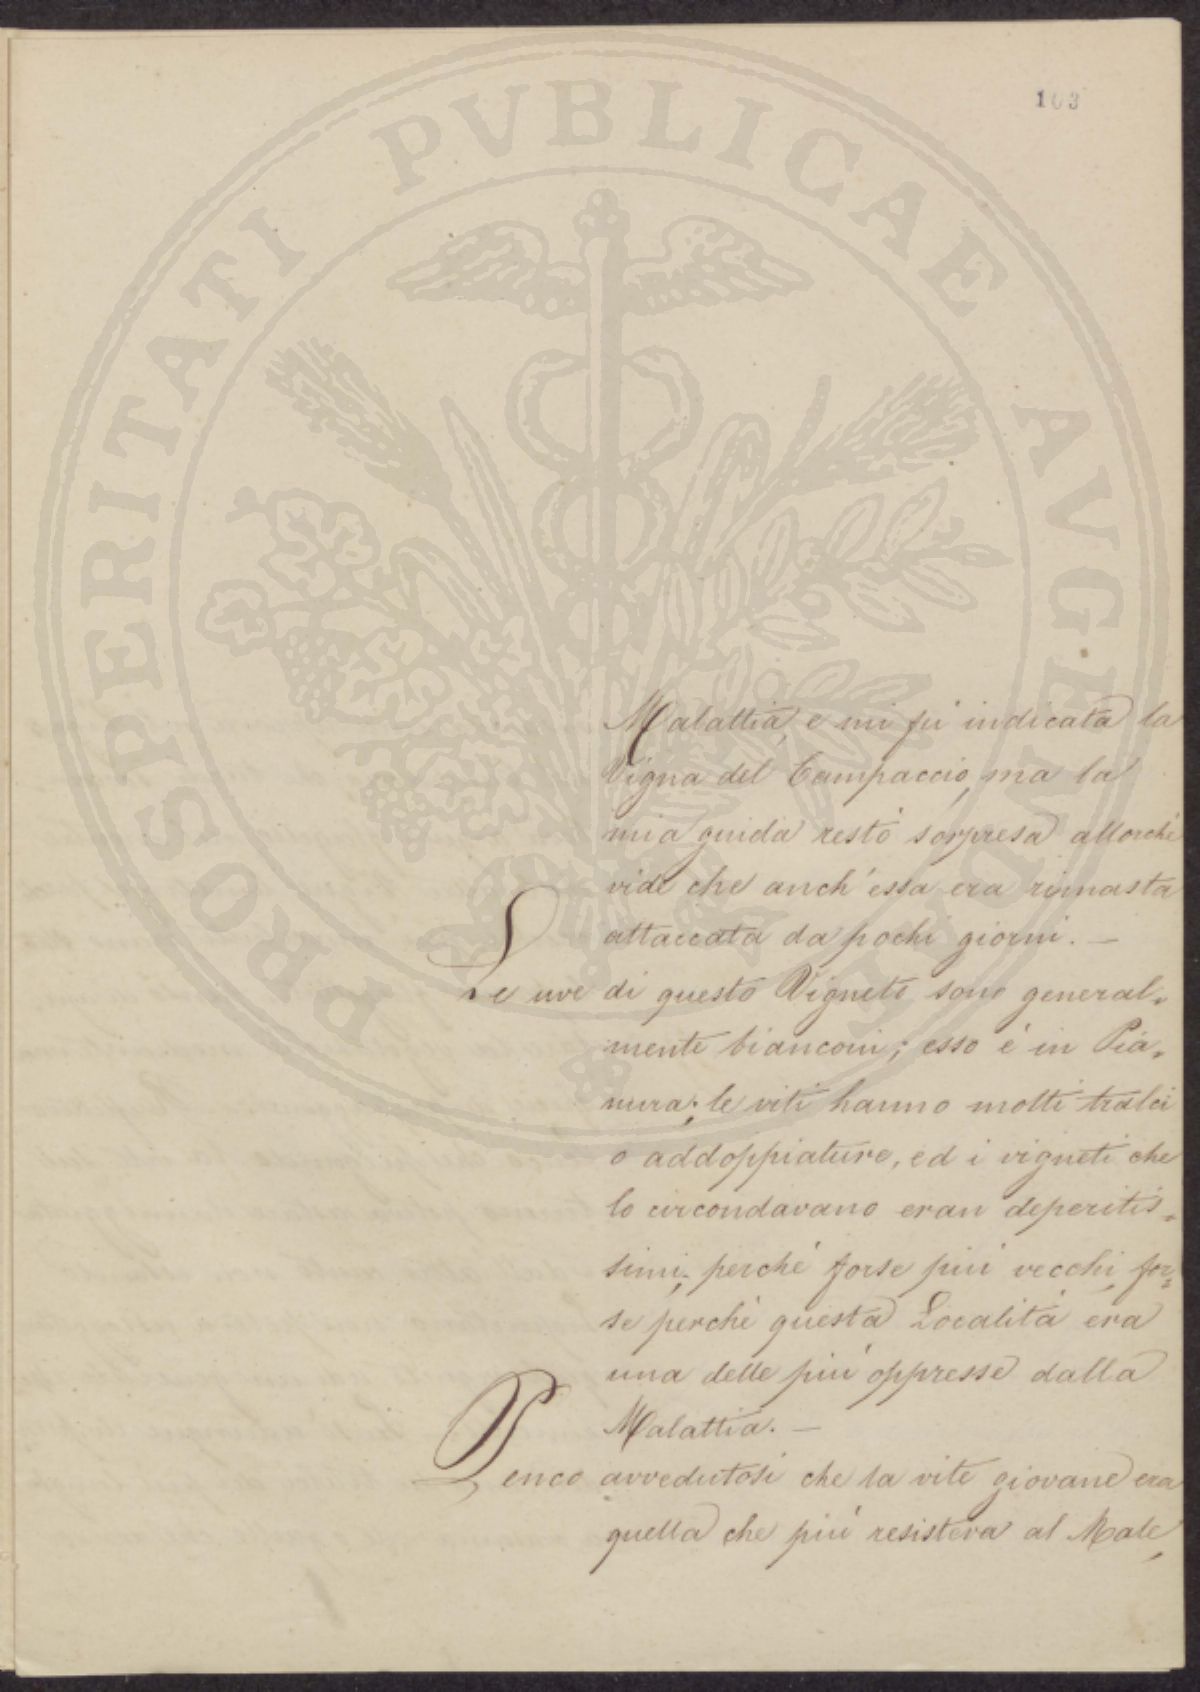 103
PROSPERITATI PVBLICAE AVGENDAE
Malattia, e mi fú indicata la
Vigna del Campaccio, ma la
mia guida restò sorpresa allorchè
vide che anch'essa era rimasta
attaccata da pochi giorni. —
Le uve di questo Vigneto sono general=
mente bianconi; esso é in Pia=
nura; le viti hanno molti tralci
o addoppiature, ed i vigneti che
lo circondavano eran deperitis=
simi; perché forse piú vecchi, for=
se perché questa Località era
una delle piú oppresse dalla
Malattia. —
Benco avvedutosi che la vite giovane era
quella che piú resisteva al Male,